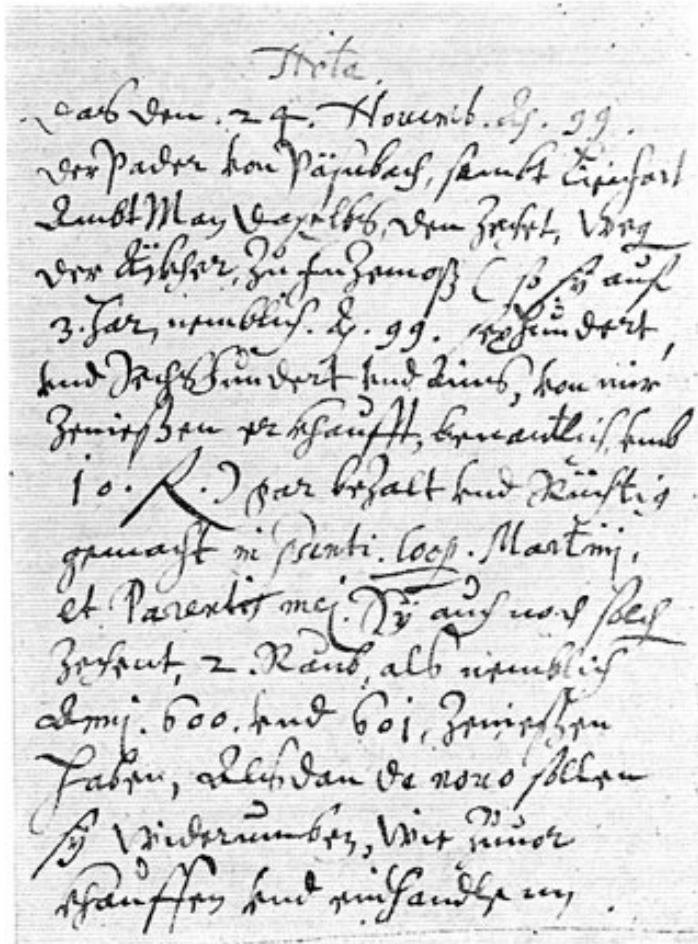 Nota.
das den. 24. Novemb. A. 99.
der Pader von Päsnbach, sambt
AmbtMan daselbs, den Zehet, weg
der, zu (so sÿ auf
3. Jar, nemblich. A. 99. sexhundert,
vnd Sechshundert vnd Ains, von mir
Zeniessen erkhaufft, benantlich vmb
10. R.) par bezalt vnd Rüchtig
gemacht in psenti. Coop. Martinj,
et Parentis mej. Sÿ auch noch solch
Zehent, 2. Raub, als nemblich
Annj. 600. vnd 601, Zeniessen
haben, Alsdan de novo sollen
sÿ widerumben, wie zuuor
khauffen vnd einhandlenn.